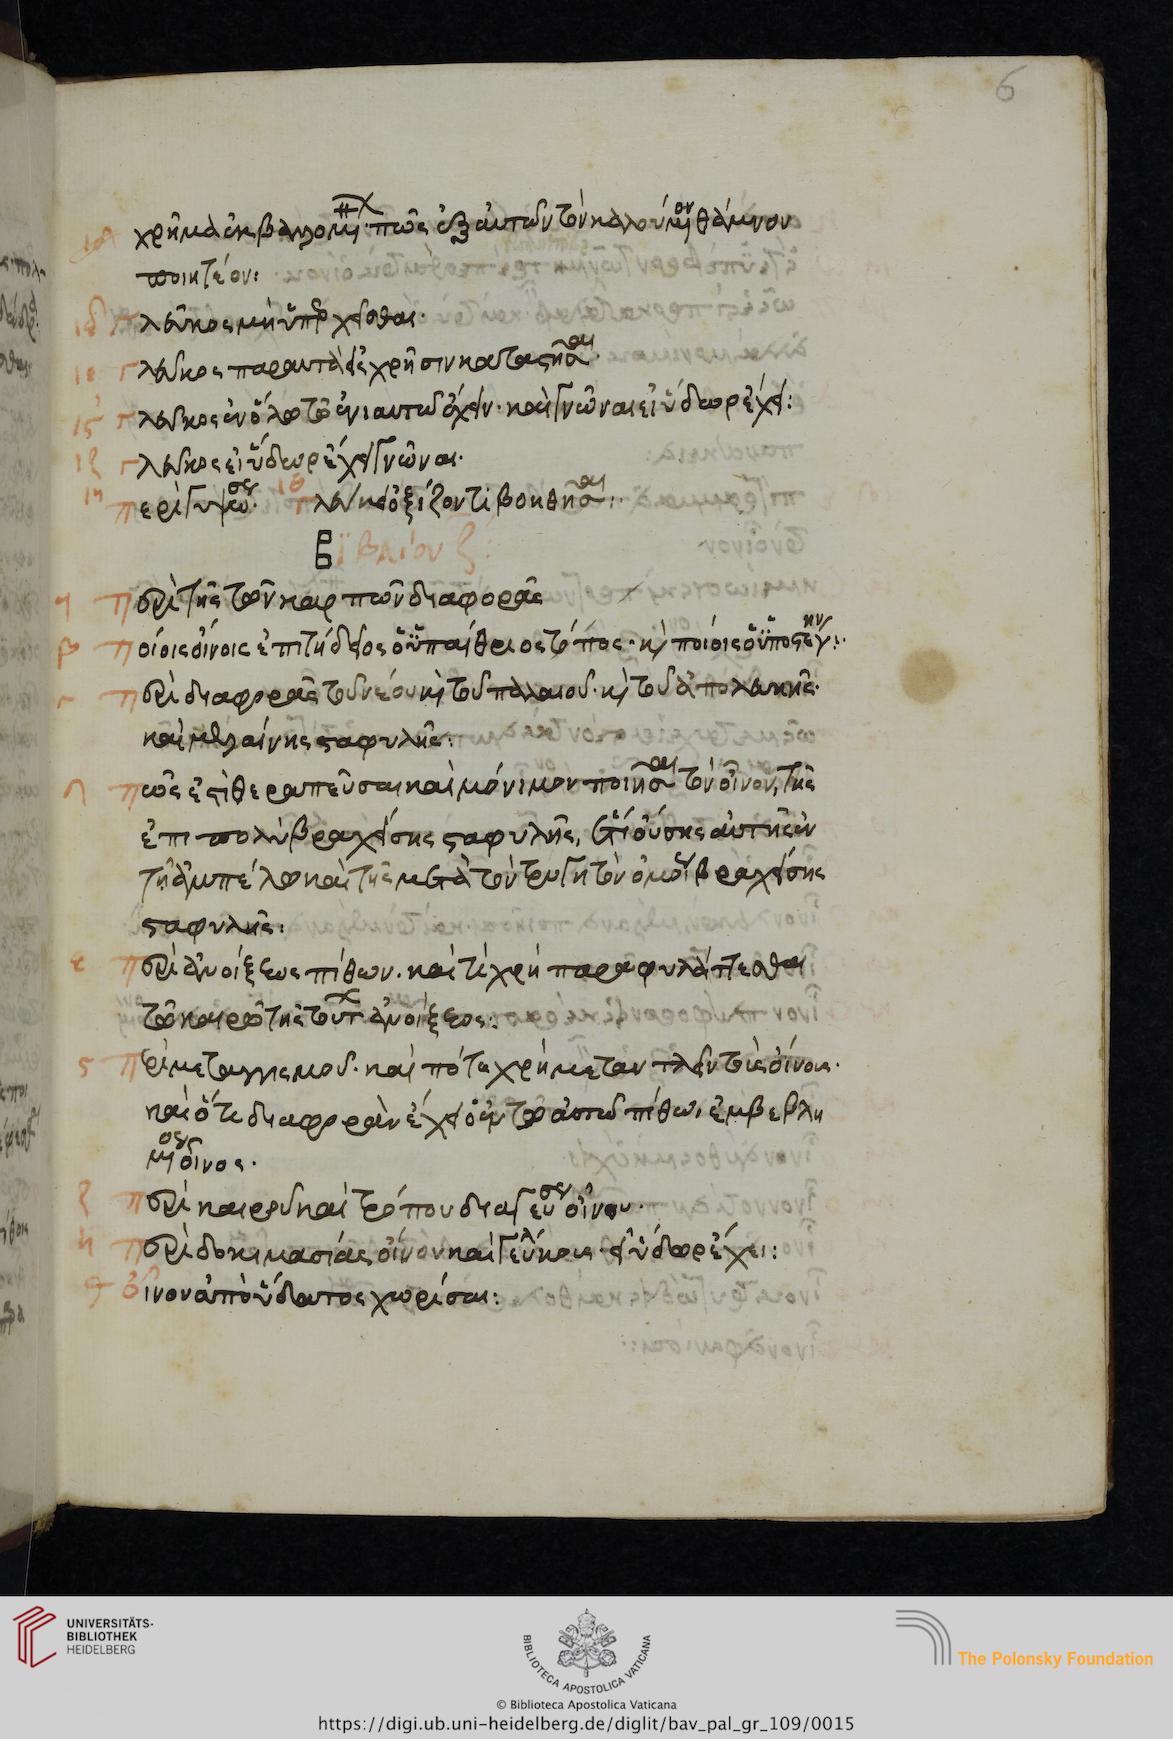 6
χρῆμα ἐκβαλλομένων πῶς ἐξ αὐτῶν τὸν καλούμενον θάμνον
ποιητέον:
ιδ γλεῦκος μὴ ὑπερχεῖσθαι.
ιε γλεῦκος παραυτὰ εἰς χρῆσιν καταστῆσαι.
ιϛ γλεῦκος ἐν ὅλῳ τῷ ἐνιαυτῷ ἔχειν. καὶ γνῶναι εἰ ὕδωρ ἔχει:
ιζ γλεῦκος εἰ ὕδωρ ἔχει γνῶναι.
ιη περὶ γυψώσεως. ιθ γλεύκει ὀξίζοντι βοηθῆσαι:
Βιβλίου ζ:
α περὶ τῆς τῶν καρπῶν διαφορᾶς
β ποίοις οἴνοις ἐπιτήδειος ὁ ὑπαίθριος τόπος. καὶ ποίοις ὁ ὑπόστεγος:
γ περὶ διαφορᾶς τοῦ νέου καὶ τοῦ παλαιοῦ. καὶ τοῦ ἀπὸ λευκῆς.
καὶ μελαίνης σταφυλῆς:
δ πῶς ἐστὶ θεραπεῦσαι καὶ μόνιμον ποιῆσαι τὸν οἶνον, τῆς
ἐπιπολὺ βραχείσης σταφυλῆς, ἔτι οὔσης αὐτῆς ἐν
τῇ ἀμπέλῳ καὶ τῆς μετὰ τὸν τρυγητὸν ὁμοῦ βραχείσης
σταφυλῆς:
ε περὶ ἀνοίξεως πίθων. καὶ τί χρὴ παραφυλάττεσθαι
τῷ καιρῷ τῆς τούτων ἀνοίξεως:
ϛ περὶ μεταγγισμοῦ. καὶ πότε χρὴ μεταντλεῖν τοὺς οἴνους.
καὶ ὅτι διαφορὰν ἔχει ὁ ἐν τῷ αὐτῷ πίθῳ, ἐμβεβλη
μένος οἶνος.
ζ περὶ καιροῦ καὶ τρόπου διαγεύσεως οἴνου.
η περὶ δοκιμασίας οἴνου καὶ γλεύκους. εἰ ὕδωρ ἔχει:
θ οἶνον ἀπὸ ὕδατος χωρίσαι:
UNIVERSITÄTS-
BIBLIOTHEK
HEIDELBERG
BIBLIOTECA APOSTOLICA VATICANA
The Polonsky Foundation
© Biblioteca Apostolica Vaticana
https://digi.ub.uni-heidelberg.de/diglit/bav_pal_gr_109/0015